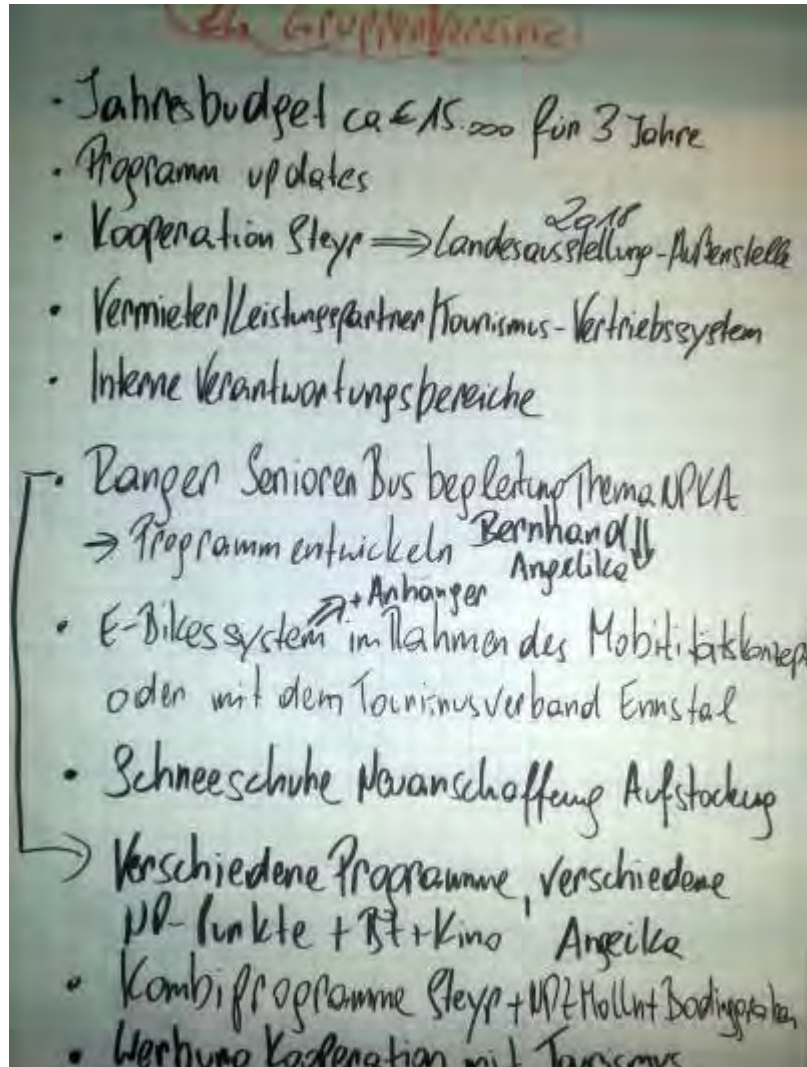 Gruppen/Vereine
• Jahresbudget ca € 15.000 für 3 Jahre
• Programm updates
2018
• Kooperation Steyr ⇒ Landesausstellung-Außenstelle
• Vermieter/Leistungspartner/Tourismus-Vertriebssystem
• Interne Verantwortungsbereiche
• Ranger Senioren Bus begleitung Thema NPKA
→ Programm entwickeln Bernhard
Angelika
+ Anhänger
• E-Bikessystem im Rahmen des Mobilitätskonzept
oder mit dem Tourismusverband Ennstal
• Schneeschuhe Neuanschaffung Aufstockung
Verschiedene Programme, verschiedene
NP-Punkte + Bf + Kino Angeika
• Kombiprogramme Steyr + NPZ Molln +
• Werbung Kooperation mit Tourismus